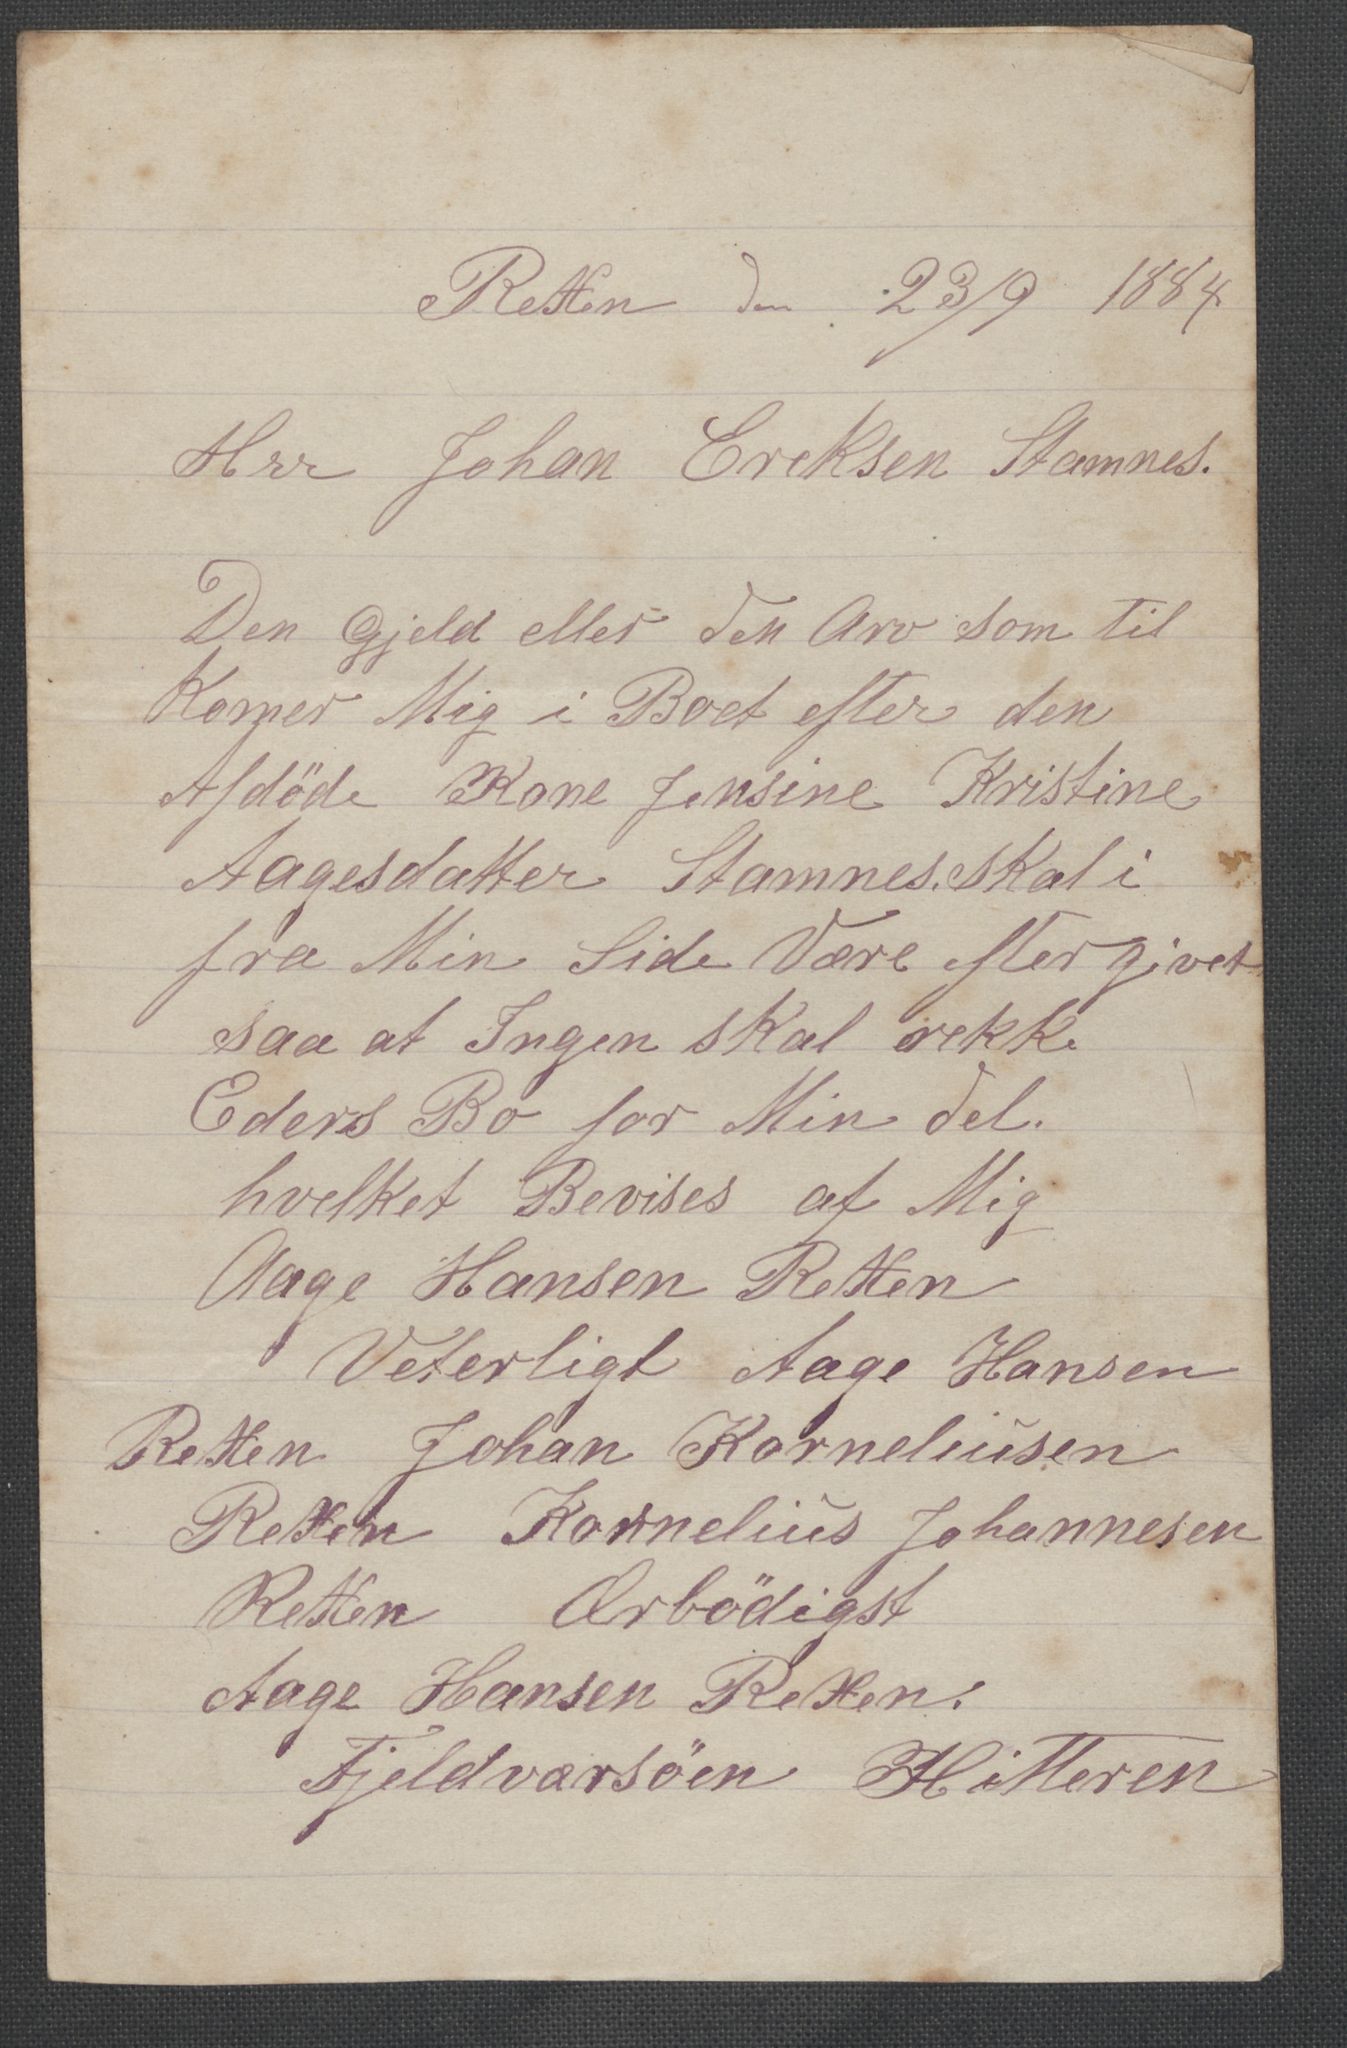 Retten den 23/9 1884
Hrr Johan Ereksen Stamnes.
Den Gjeld eller den Arv som til
Komer Mig i Boet efter den
Afdöde Kone Jensine Kristine
Aagesdatter Stamnes. skal i
fra Min Side Være efter givet
saa at Ingen skal rekke
Eders Bo for Min del.
hvelket Bevises af Mig
Aage Hansen Retten
Veterligt Aage Hansen
Retten Johan Korneliusen
Retten Kornelius Johannesen
Retten Ærbödigst
Aage Hansen Retten.
Fjeldværsöen Hitteren